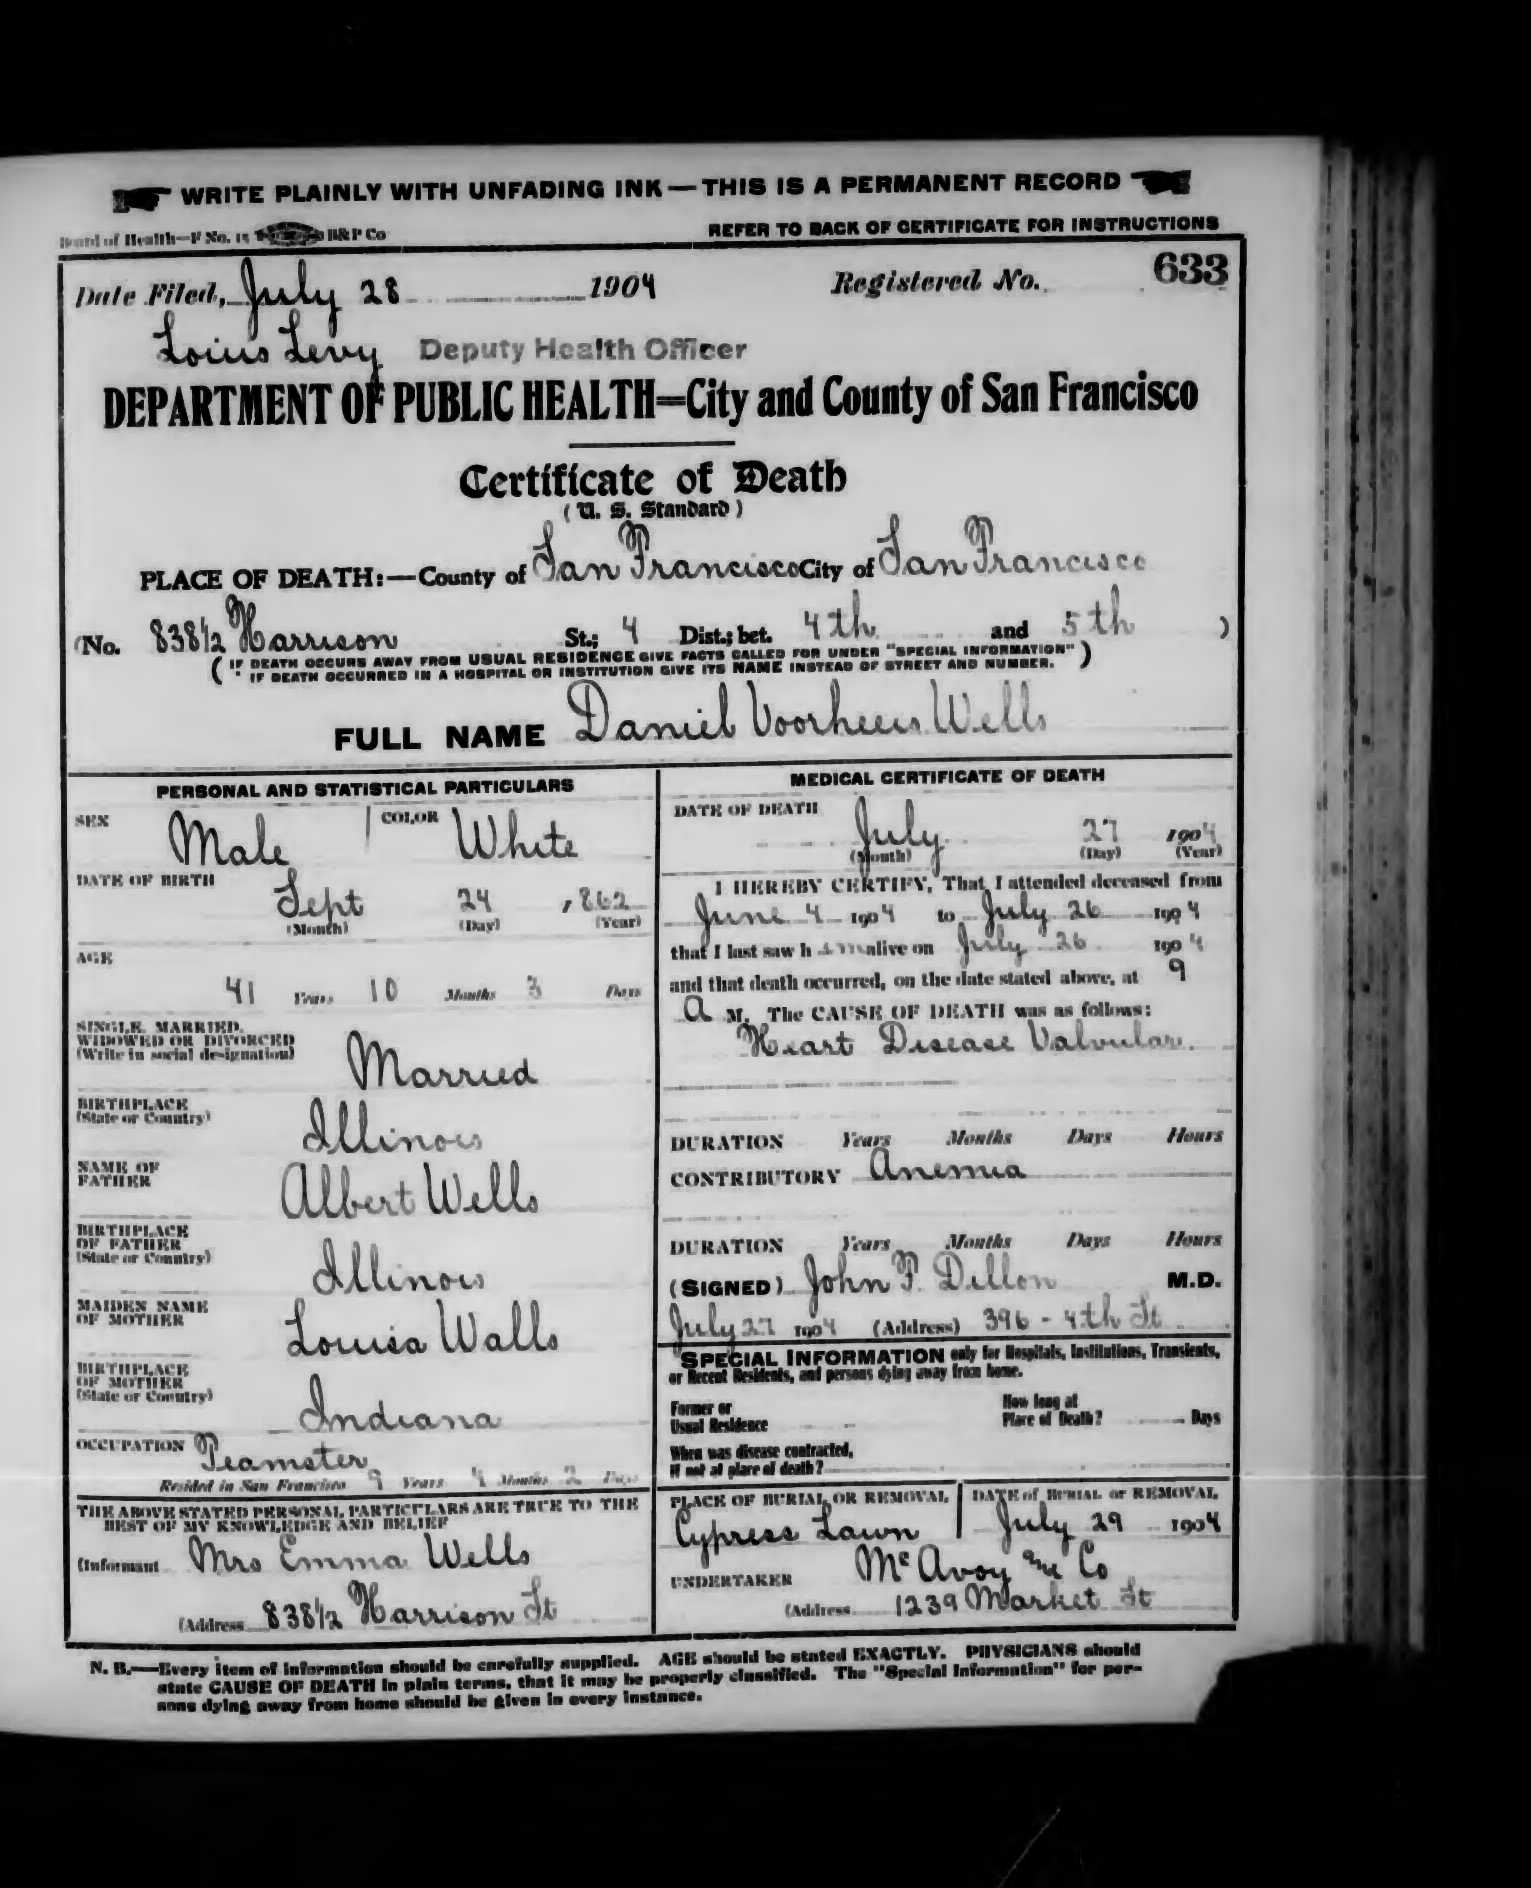 WRITE PLAINLY WITH UNFADING INK — THIS IS A PERMANENT RECORD
Board of Health—F No. 15 B&P Co
REFER TO BACK OF CERTIFICATE FOR INSTRUCTIONS
Date Filed, July 28 1904 Registered No. 633
Loius Levy Deputy Health Officer
DEPARTMENT OF PUBLIC HEALTH=City and County of San Francisco
Certificate of Death
(U. S. Standard)
PLACE OF DEATH:—County of San Francisco City of San Francisco
(No. 838 1/2 Harrison St.; 4 Dist.; bet. 4th and 5th )
( IF DEATH OCCURS AWAY FROM USUAL RESIDENCE GIVE FACTS CALLED FOR UNDER "SPECIAL INFORMATION" )
( IF DEATH OCCURRED IN A HOSPITAL OR INSTITUTION GIVE ITS NAME INSTEAD OF STREET AND NUMBER. )
FULL NAME Daniel Voorhees Wells
PERSONAL AND STATISTICAL PARTICULARS
SEX Male COLOR White
DATE OF BIRTH
Sept 24 , 862
(Month) (Day) (Year)
AGE
41 Years 10 Months 3 Days
SINGLE, MARRIED,
WIDOWED OR DIVORCED
(Write in social designation)
Married
BIRTHPLACE
(State or Country)
Illinois
NAME OF
FATHER
Albert Wells
BIRTHPLACE
OF FATHER
(State or Country)
Illinois
MAIDEN NAME
OF MOTHER
Louisa Walls
BIRTHPLACE
OF MOTHER
(State or Country)
Indiana
OCCUPATION Teamster
Resided in San Francisco 9 Years 4 Months 2 Days
THE ABOVE STATED PERSONAL PARTICULARS ARE TRUE TO THE
BEST OF MY KNOWLEDGE AND BELIEF
(Informant Mrs Emma Wells
(Address 838 1/2 Harrison St
MEDICAL CERTIFICATE OF DEATH
DATE OF DEATH
July 27 1904
(Month) (Day) (Year)
I HEREBY CERTIFY, That I attended deceased from
June 4 1904 to July 26 1904
that I last saw h im alive on July 26 1904
and that death occurred, on the date stated above, at 9
A M. The CAUSE OF DEATH was as follows:
Heart Disease Valvular.
DURATION Years Months Days Hours
CONTRIBUTORY Anemia
DURATION Years Months Days Hours
(SIGNED) John F. Dillon M.D.
July 27 1904 (Address) 396 - 4th St
SPECIAL INFORMATION only for Hospitals, Institutions, Transients,
or Recent Residents, and persons dying away from home.
Former or
Usual Residence
How long at
Place of Death? Days
When was disease contracted,
If not at place of death?
PLACE OF BURIAL OR REMOVAL DATE of BURIAL or REMOVAL
Cypress Lawn July 29 1904
UNDERTAKER McAvoy and Co
(Address 1239 Market St
N. B.—Every item of information should be carefully supplied. AGE should be stated EXACTLY. PHYSICIANS should
state CAUSE OF DEATH in plain terms, that it may be properly classified. The "Special Information" for per-
sons dying away from home should be given in every instance.